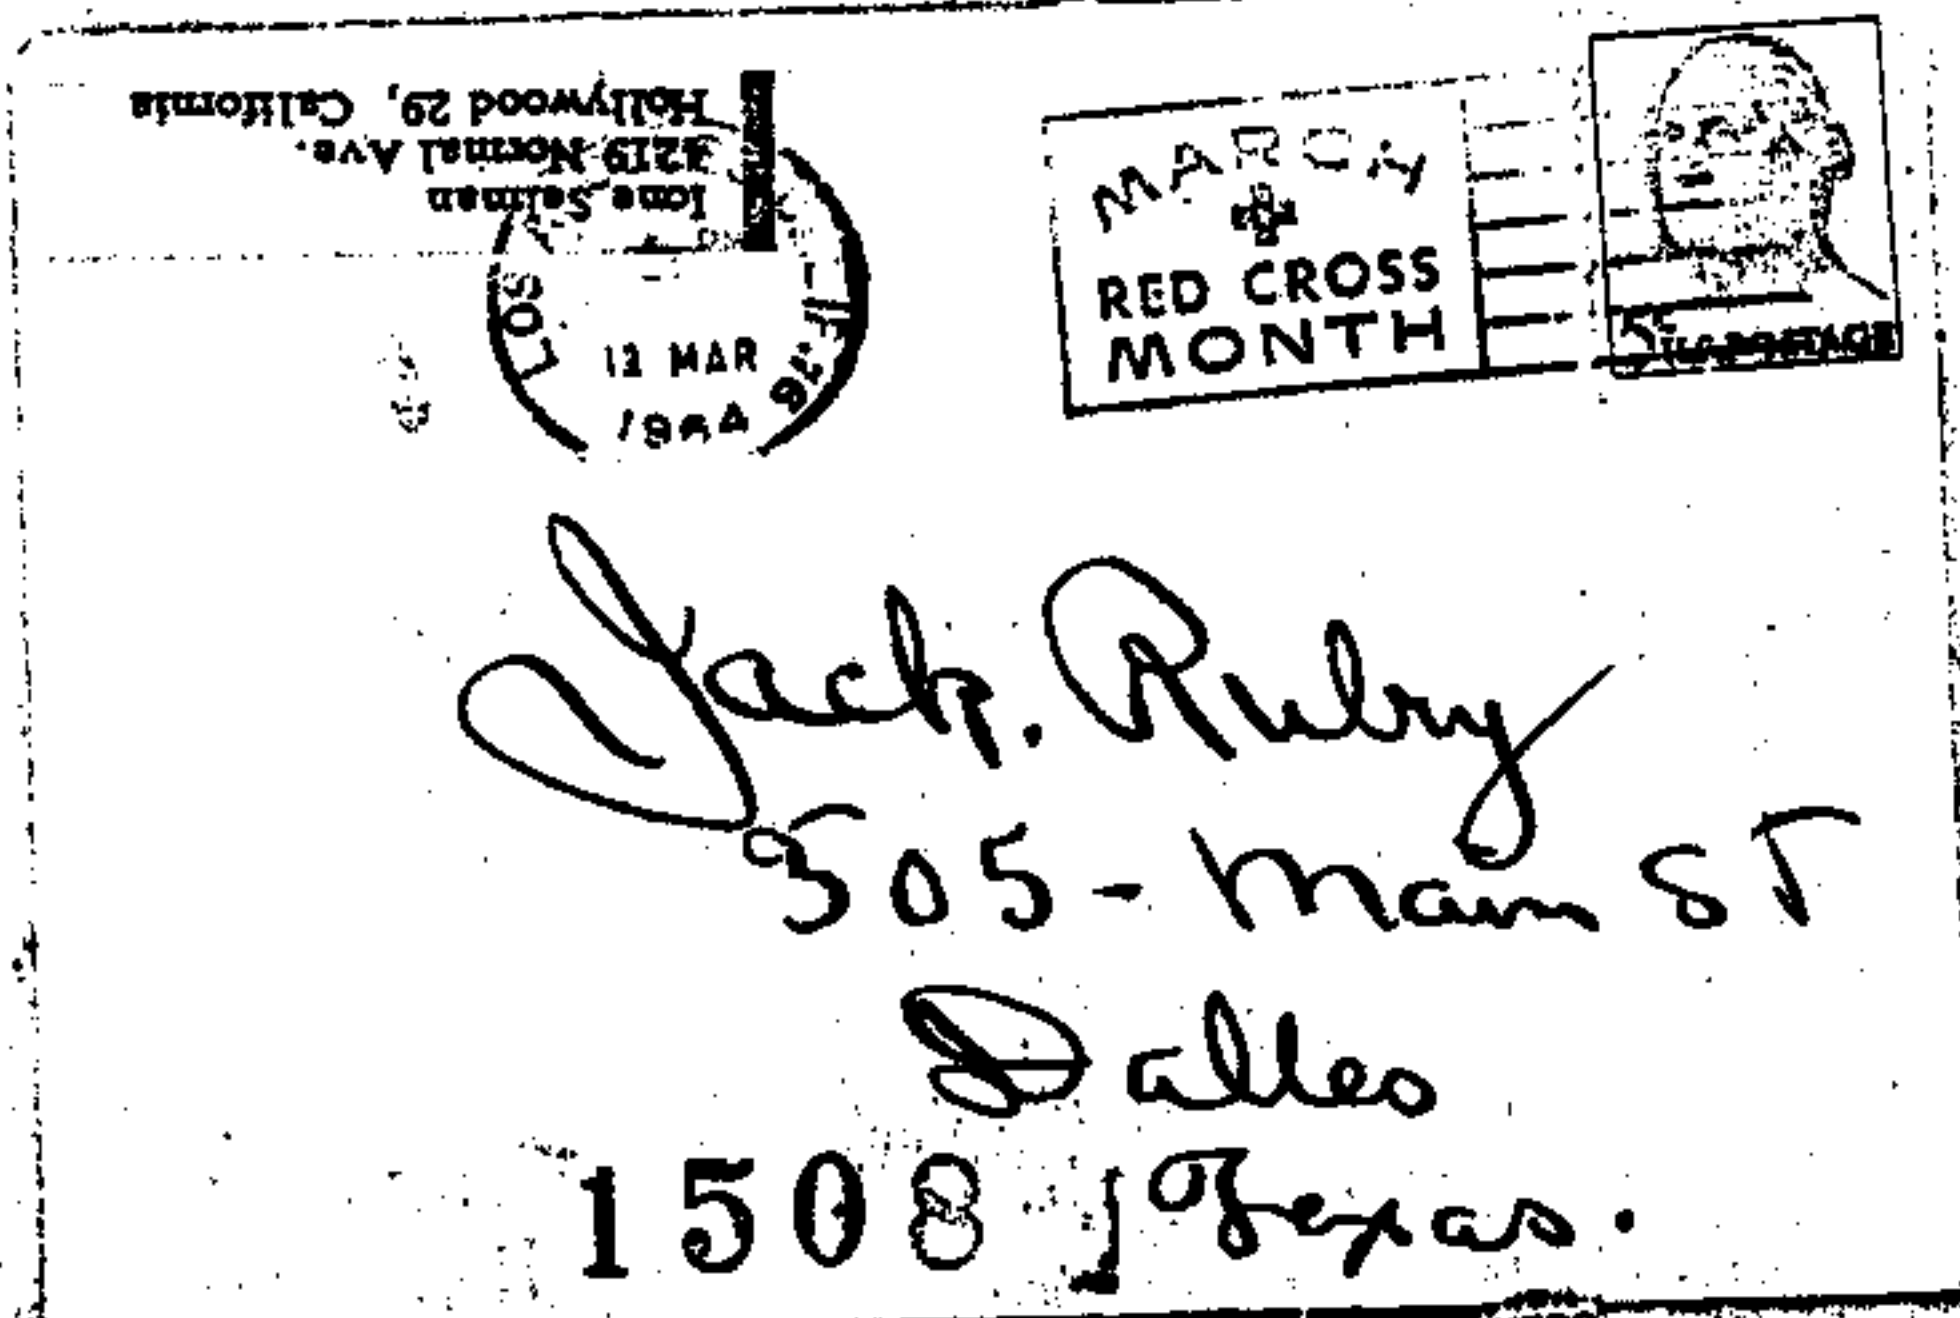 Ione Selman
3219 Normal Ave.
Hollywood 29, California
LOS
12 MAR
1964
MARCH
RED CROSS
MONTH
5¢
Jack. Ruby
505 - Main ST
Dallas
Texas.
1508